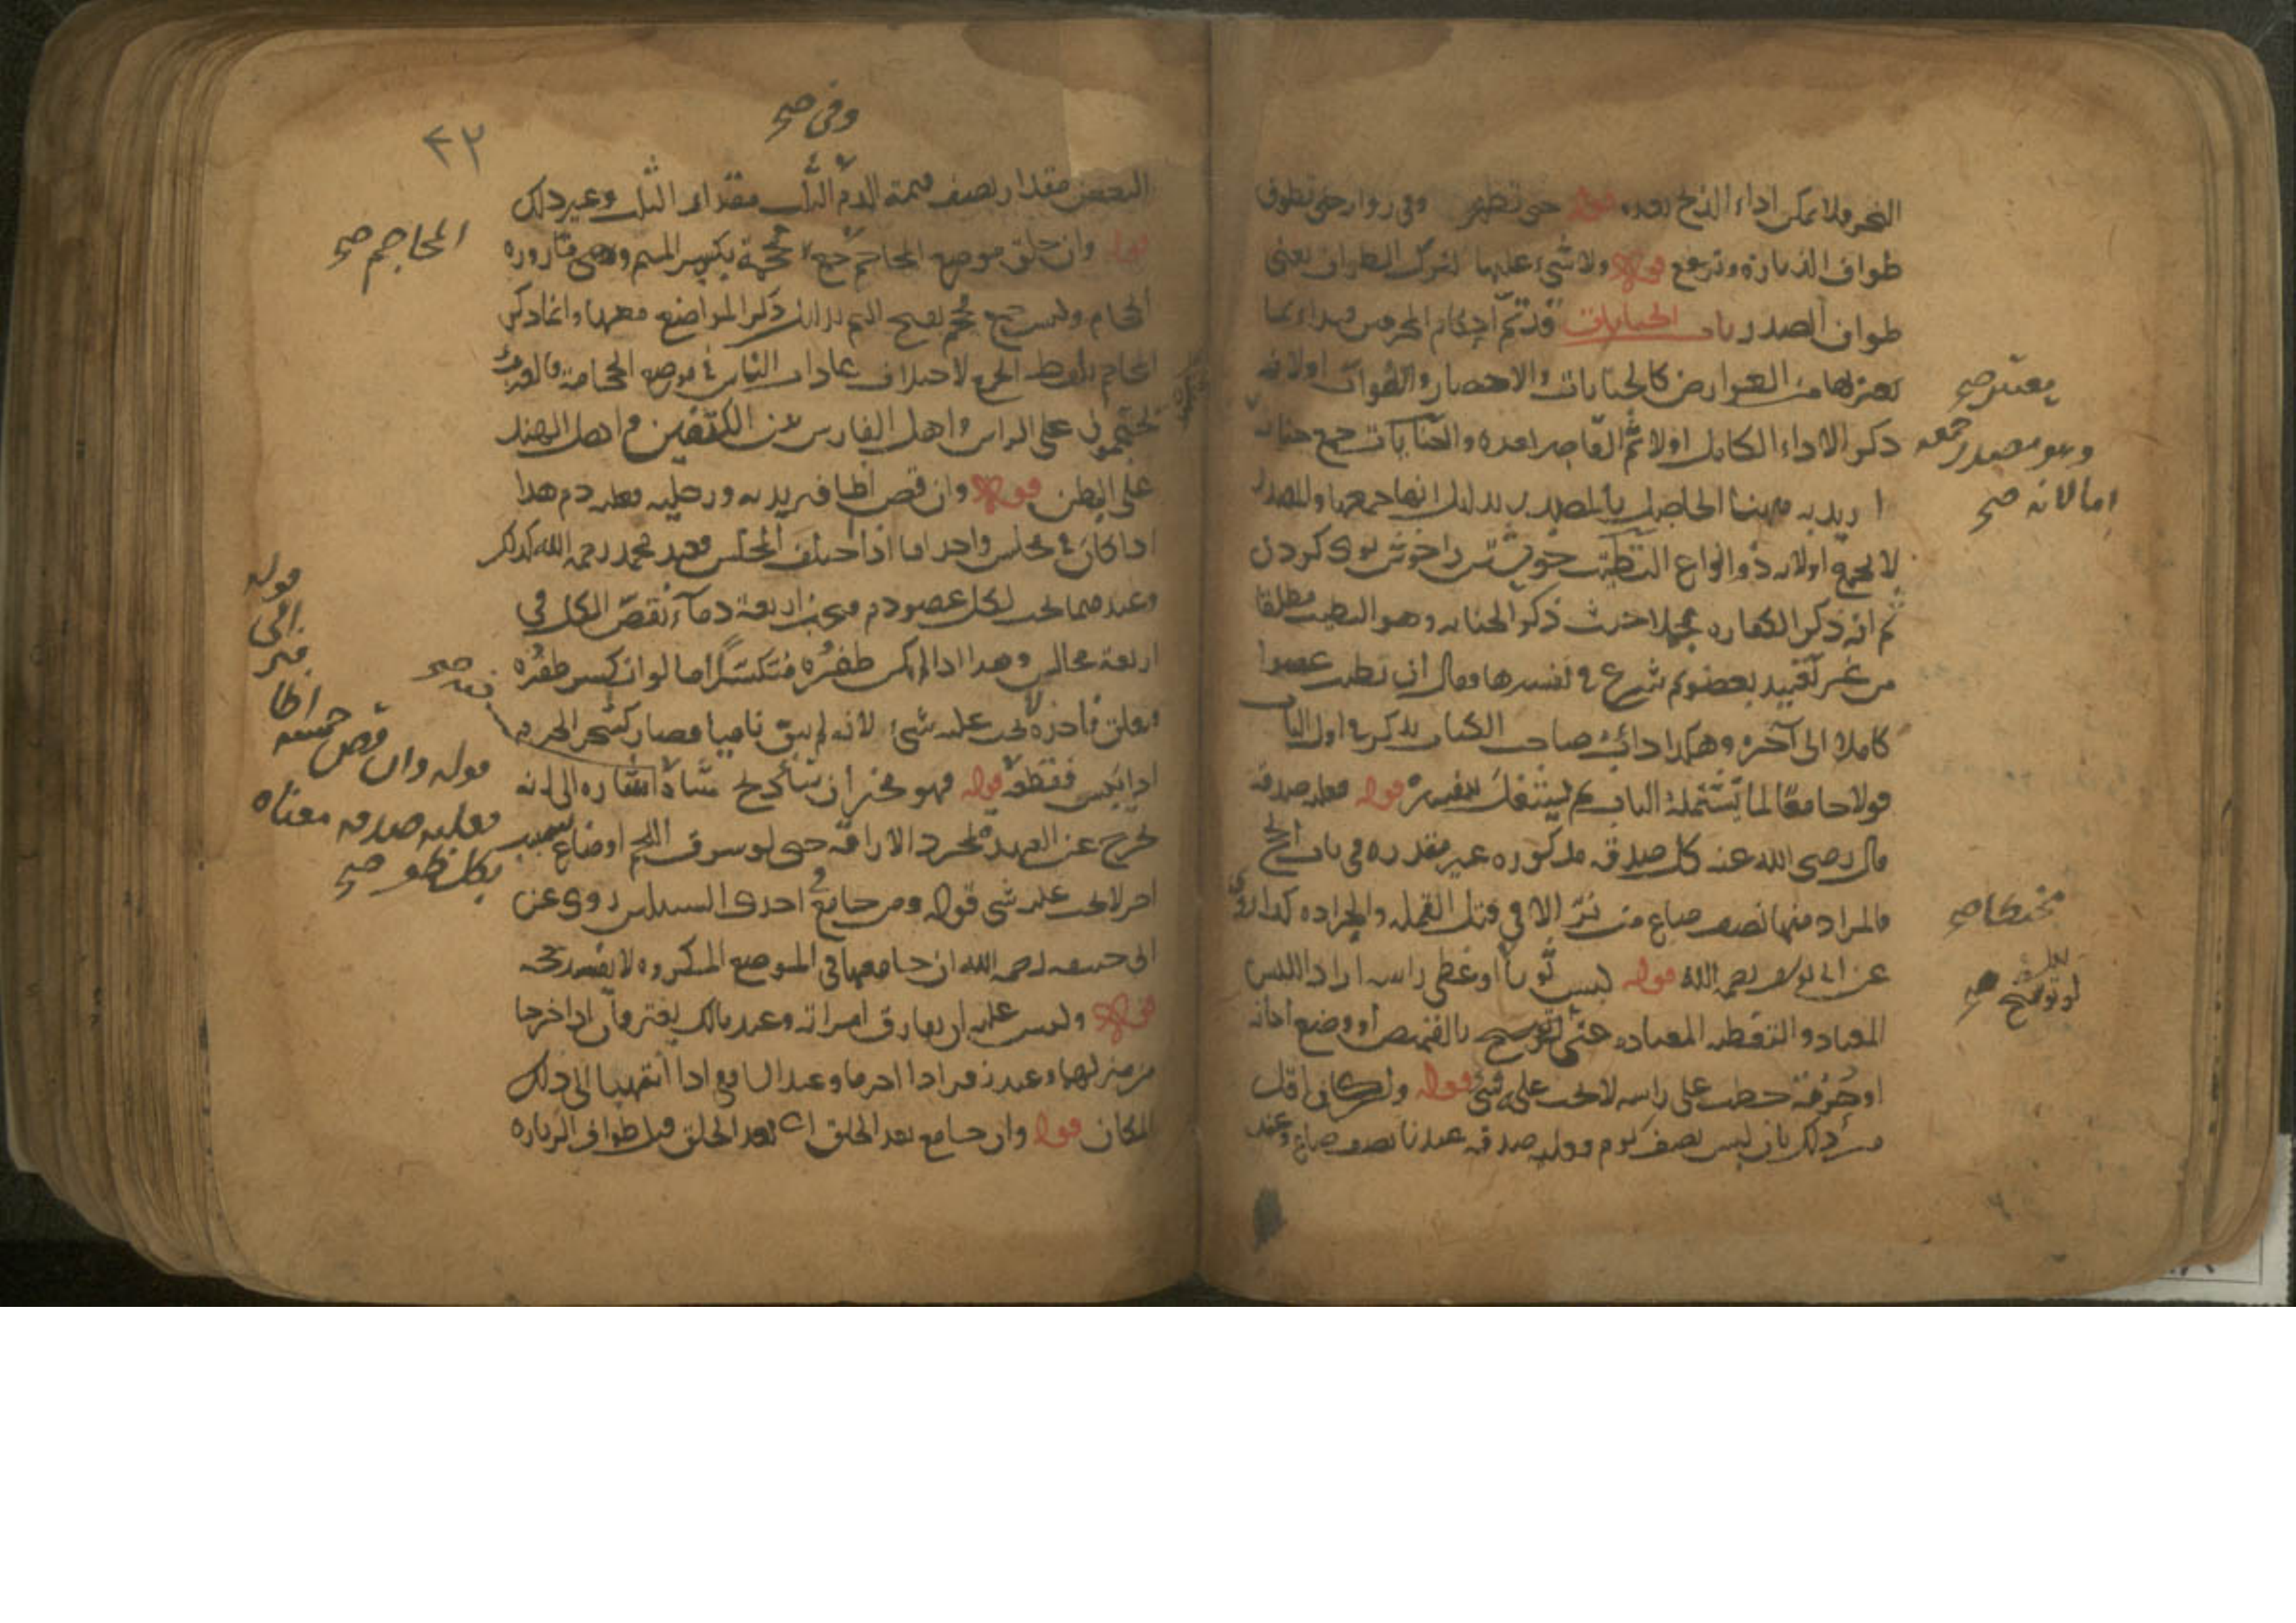 النحر فلا يمكن اداء الذبح بعده قوله حتى تطهر وفي رواية حتى تطوف
طواف الزيارة وترجع قوله ولا شيء عليها لترك الطواف يعني
طواف الصدر باب الجنايات قد تم احكام المحرمين فبدأ بما
يعتريها من العوارض كالجنايات والاحصار والفوات اولانه
ذكر الاداء الكامل اولا ثم القاصر بعده والجنايات جمع جناية
اريد به ههنا الحاصل بالمصدر بدليل انها جمعها والمصدر
لا يجمع اولارادة انواع التطيب خويشتن را خوش بوى كردن
ثم انه ذكر الكفارة مجملا حيث ذكر الجناية وهو التطيب مطلقا
من غير تقييد بعضو ثم شرع في تفسيرها وقال ان تطيب عضوا
كاملا الى آخره وهكذا دأب صاحب الكتاب يذكر في اول الباب
قولا جامعا لما يشتمله الباب ثم يشتغل بتفسيره قوله فعليه صدقة
قال رضي الله عنه كل صدقة مذكورة غير مقدرة في باب الحج
فالمراد منها نصف صاع من بر الا في قتل القملة والجرادة كذا روي
عن ابي يوسف رحمه الله قوله لبس ثوبا او غطى راسه اراد اللبس
المعتاد والتغطية المعتادة حتى بالقميص او وضع اجانة
او خرقة حطت على راسه لا يجب عليه شيء قوله وان كان اقل
من ذلك بان لبس نصف يوم فعليه صدقة عندنا نصف صاع وعند
يعتبر صح
وهو مصدر جمعه
اما لانه صح
لو توشح صح
٤٢
وفي صح
البعض مقدار نصف قيمة الدم الثلث مقدار الثلث وغير ذلك
قوله وان حلق موضع المحاجم جمع محجمة بكسر الميم وهي قارورة
الحجام وليست جمع محجم بفتح الميم بدليل ذكر المواضع معها وانما ذكر
المحاجم بلفظ الجمع لاختلاف عادات الناس في موضع الحجامة فالعرب
يحتجمون على الراس واهل الفارس بين الكتفين واهل الهند
على البطن قوله وان قص اظافير يديه ورجليه فعليه دم هذا
اذا كان في مجلس واحد اما اذا اختلف المجلس فعند محمد رحمه الله كذلك
وعندهما يجب لكل عضو دم فيجب اربعة دماء قص الكل في
اربعة مجالس وهذا اذا لم يكن ظفره منكسرا اما لو انكسر ظفره
فعلق فأخذه لا يجب عليه شيء لانه لم يبق ناميا فصار كشجر الحرم
اذا يبس فقطعه قوله فهو مخير ان شاء ذبح شاة اشارة الى انه
يخرج عن العهدة بمجرد الاراقة حتى لو سرق اللحم او ضاع بسبب
اخر لا يجب عليه شيء قوله ومن جامع في احدى السبيلين روي عن
ابي حنيفة رحمه الله ان جامعها في الموضع المكروه لا يفسد حجه
قوله وليس عليه ان يفارق امراته وعند مالك يفترقان اذا خرجا
من منزلهما وعند زفر اذا احرما وعند الشافعي اذا انتهيا الى ذلك
المكان قوله وان جامع بعد الحلق اى بعد الحلق قبل طواف الزيارة
المحاجم صح
قوله وان قص خمسة
فعليه صدقة معناه
بكل ظفر صح